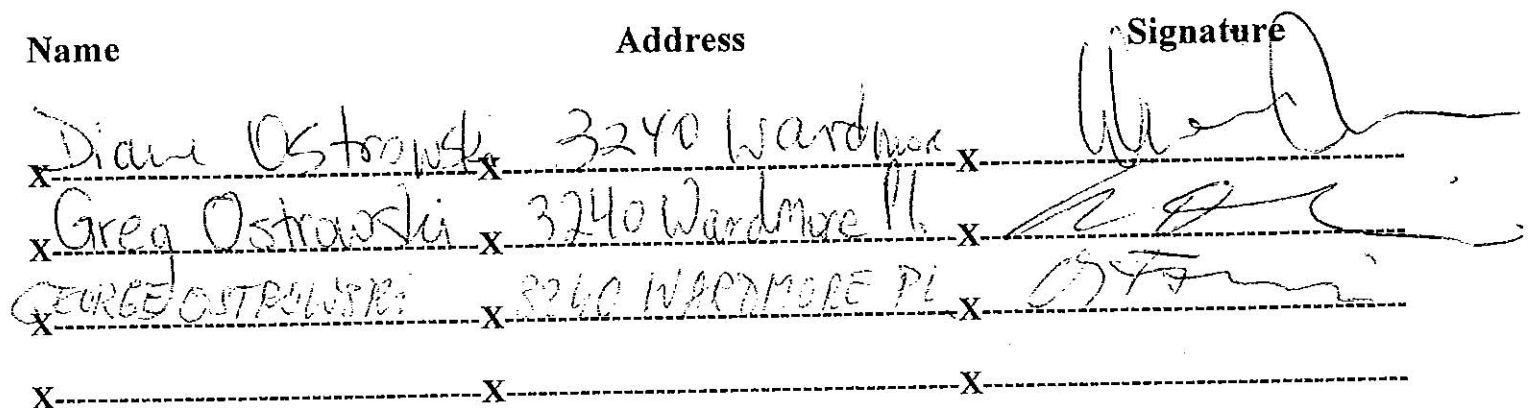 Name Address Signature
X Diane Ostrowski X 3240 Wardmore X
X Greg Ostrowski X 3240 Wardmore Pl. X
X GEORGE OSTROWSKI X 3240 WARDMORE PL X
X X X